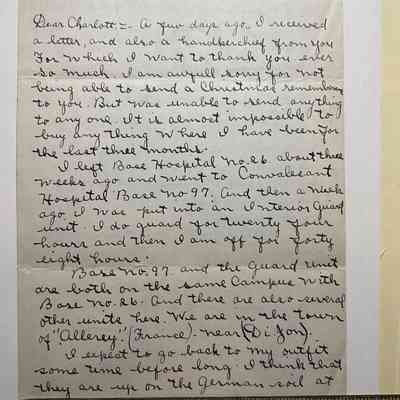 Dear Charlott:- A few days ago, I received
a letter, and also a handkerchief from you
For which I want to thank you ever
so much. I am awfull sorry for not
being able to send a Christmas remembrance
to you. But was unable to send anything
to any one. It is almost impossible to
buy any thing where I have been for
the last three months.
I left Base Hospital No. 26. about three
weeks ago and went to Convalecant
Hospital Base No 97. And then a week
ago, I was put into an Interior Guard
unit. I do guard for twenty four
hours and then I am off for forty
eight hours.
Base No. 97. and the Guard Unit
are both on the same Campus with
Base No. 26. And there are also several
other units here. We are in the town
of "Allerey." (France). near (Di Jon).
I expect to go back to my outfit
some time before long. I think that
they are up on the German soil at